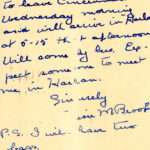 to leave Cincinnati
Wednesday morning
and will arrive in Harlan
at 5-15 th t afternoon
Will come by bus. Ex-
pect some one to meet
me in Harlan.
Sincerely
M. Brook
P.S. I will have two